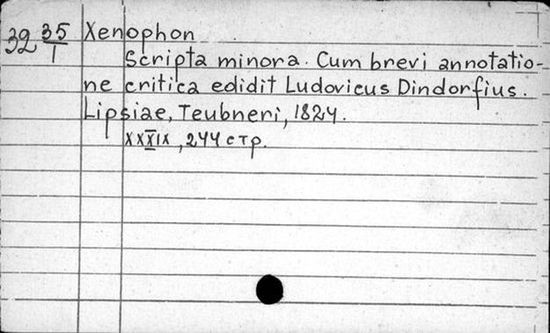 32 35/1 Xenophon
Scripta minora. Cum brevi annotatio-
ne critica edidit Ludovicus Dindorfius.
Lipsiae, Teubneri, 1824.
XXXIX, 244 стр.